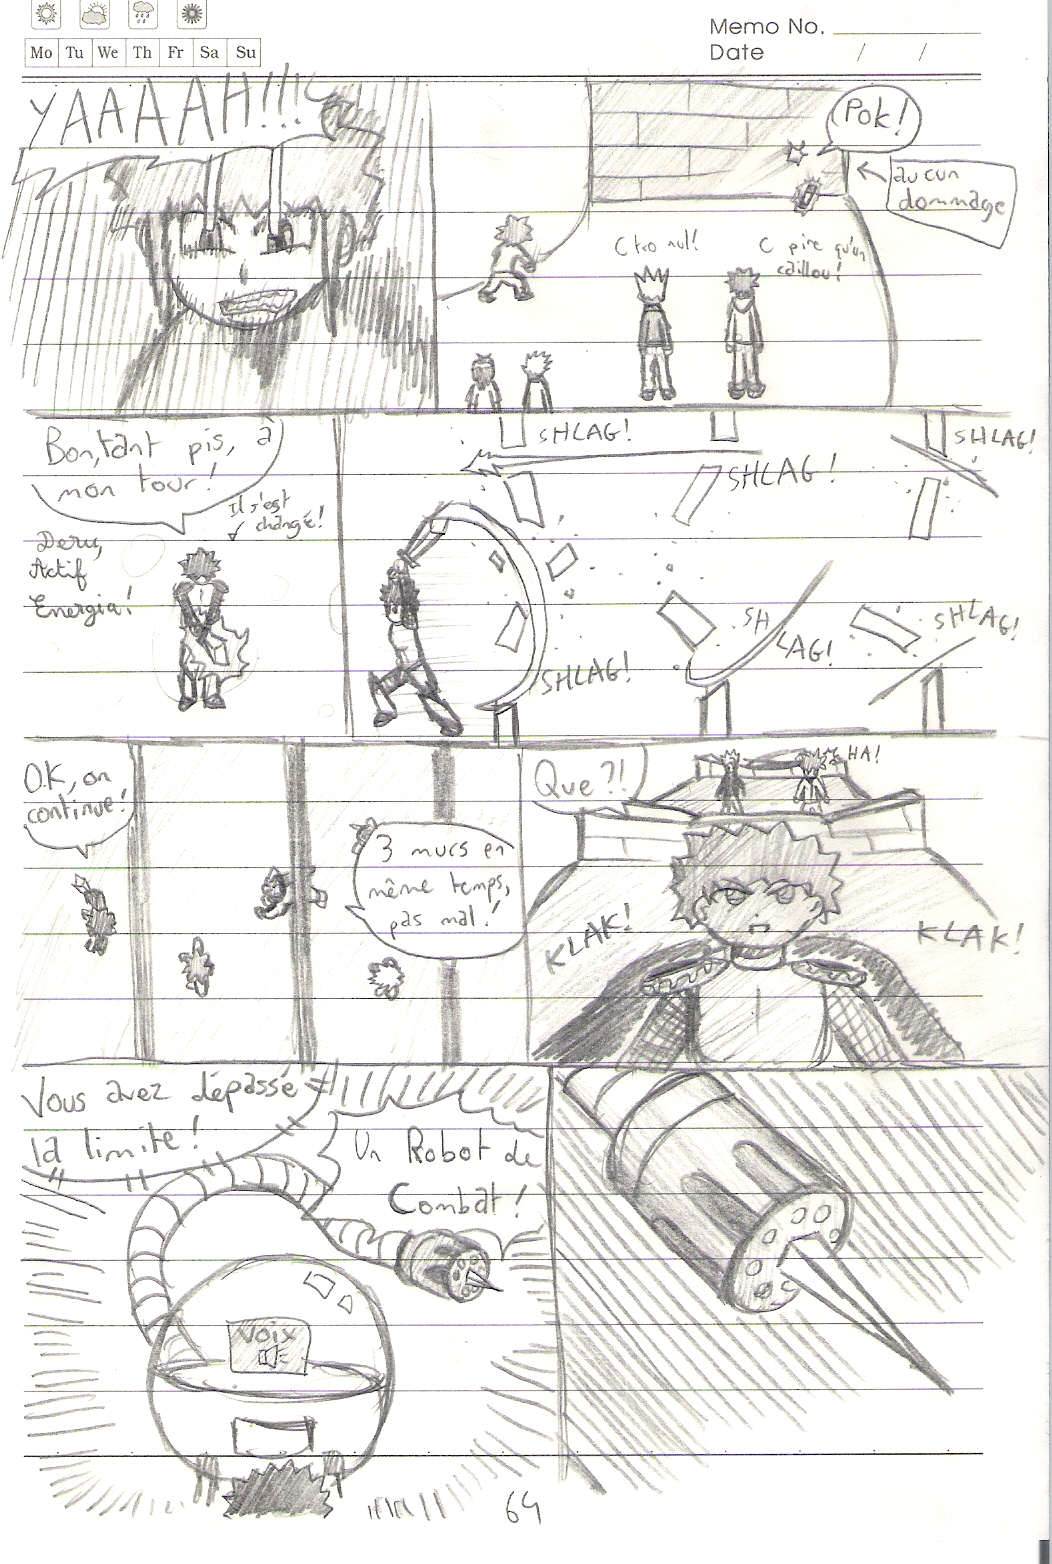 Memo No.
Mo Tu We Th Fr Sa Su
Date / /
YAAAAH!!!
Pok!
aucun
dommage
C tro nul!
C pire qu'un
caillou!
Bon, tant pis, à
mon tour!
Il s'est
changé!
Deru,
Actif
Energia!
SHLAG!
SHLAG!
SHLAG!
SHLAG!
SH
LAG!
SHLAG!
O.K, on
continue!
3 murs en
même temps,
pas mal!
Que ?!!
HA!
KLAK!
KLAK!
Vous avez dépassé
la limite!
Un Robot de
Combat!
Voix
64